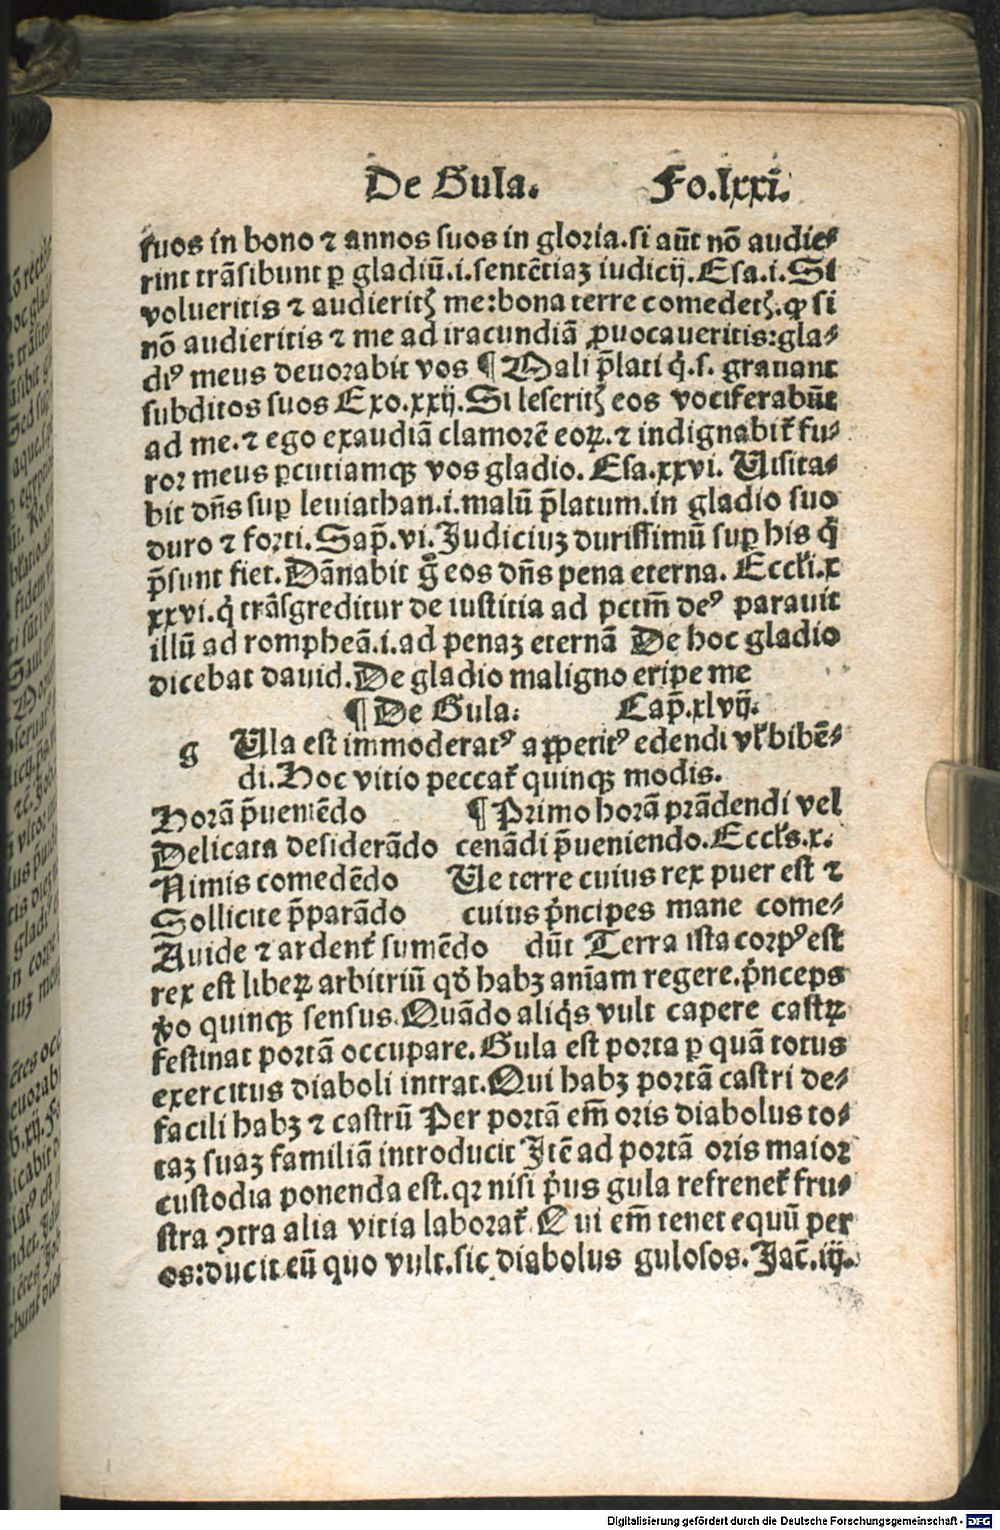 De Gula. Fo.lxxi.
suos in bono ⁊ annos suos in gloria.si aūt nō audie⸗
rint trāsibunt ꝑ gladiū.i.sentētiaꝫ iudicij.Esa.i.Si
volueritis ⁊ audieritꝭ me:bona terre comedetꝭ.ꝙ si
nō audieritis ⁊ me ad iracundiā ꝓuocaueritis:gla⸗
diꝰ meus deuorabit vos ¶ Mali p̄lati q̇.s. grauant
subditos suos Exo.xxij.Si leseritꝭ eos vociferabūt
ad me.⁊ ego exaudiā clamorē eoꝝ.⁊ indignabit᷑ fu⸗
ror meus ꝑcutiamqꝫ vos gladio. Esa.xxvi. Uisita⸗
bit dn̄s suꝑ leuiathan.i.malū p̄latum.in gladio suo
duro ⁊ forti.Sap̄.vi.Judiciuꝫ durissimū suꝑ his q̇
p̄sunt fiet.Dānabit gͦ eos dn̄s pena eterna. Eccƚi.x
xxvi.q̇ trāsgreditur de iustitia ad pctm̄ deꝰ parauit
illū ad rompheā.i.ad penaꝫ eternā De hoc gladio
dicebat dauid.De gladio maligno eripe me
¶ De Gula. Cap̄.xlvij.
g Ulla est immoderatꝰ aꝑpetitꝰ edendi vƚ bibē⸗
di.Hoc vitio peccat᷑ quinqꝫ modis.
Horā p̄ueniēdo ¶ Primo horā prādendi vel
Delicata desiderādo cenādi p̄ueniendo.Eccƚs.x.
Nimis comedēdo Ue terre cuius rex puer est ⁊
Sollicite p̄parādo cuius pͥncipes mane come⸗
Auide ⁊ ardent᷑ sumēdo dūt Terra ista corpꝰ est
rex est libeꝝ arbitriū qđ habꝫ aīam regere.pͥnceps
ꝟo quinqꝫ sensus.Quādo aliq̇s vult capere castꝝ
festinat portā occupare.Gula est porta ꝑ quā totus
exercitus diaboli intrat.Qui habꝫ portā castri de⸗
facili habꝫ ⁊ castrū Per portā em̄ oris diabolus to⸗
taꝫ suaꝫ familiā introducit Itē ad portā oris maior
custodia ponenda est.qꝛ nisi pͥus gula refrenet᷑ fru⸗
stra ꝯtra alia vitia laborat᷑ Qui em̄ tenet equū per
os:ducit eū quo vult.sic diabolus gulosos. Jac̄.iij.
Digitalisierung gefördert durch die Deutsche Forschungsgemeinschaft - DFG